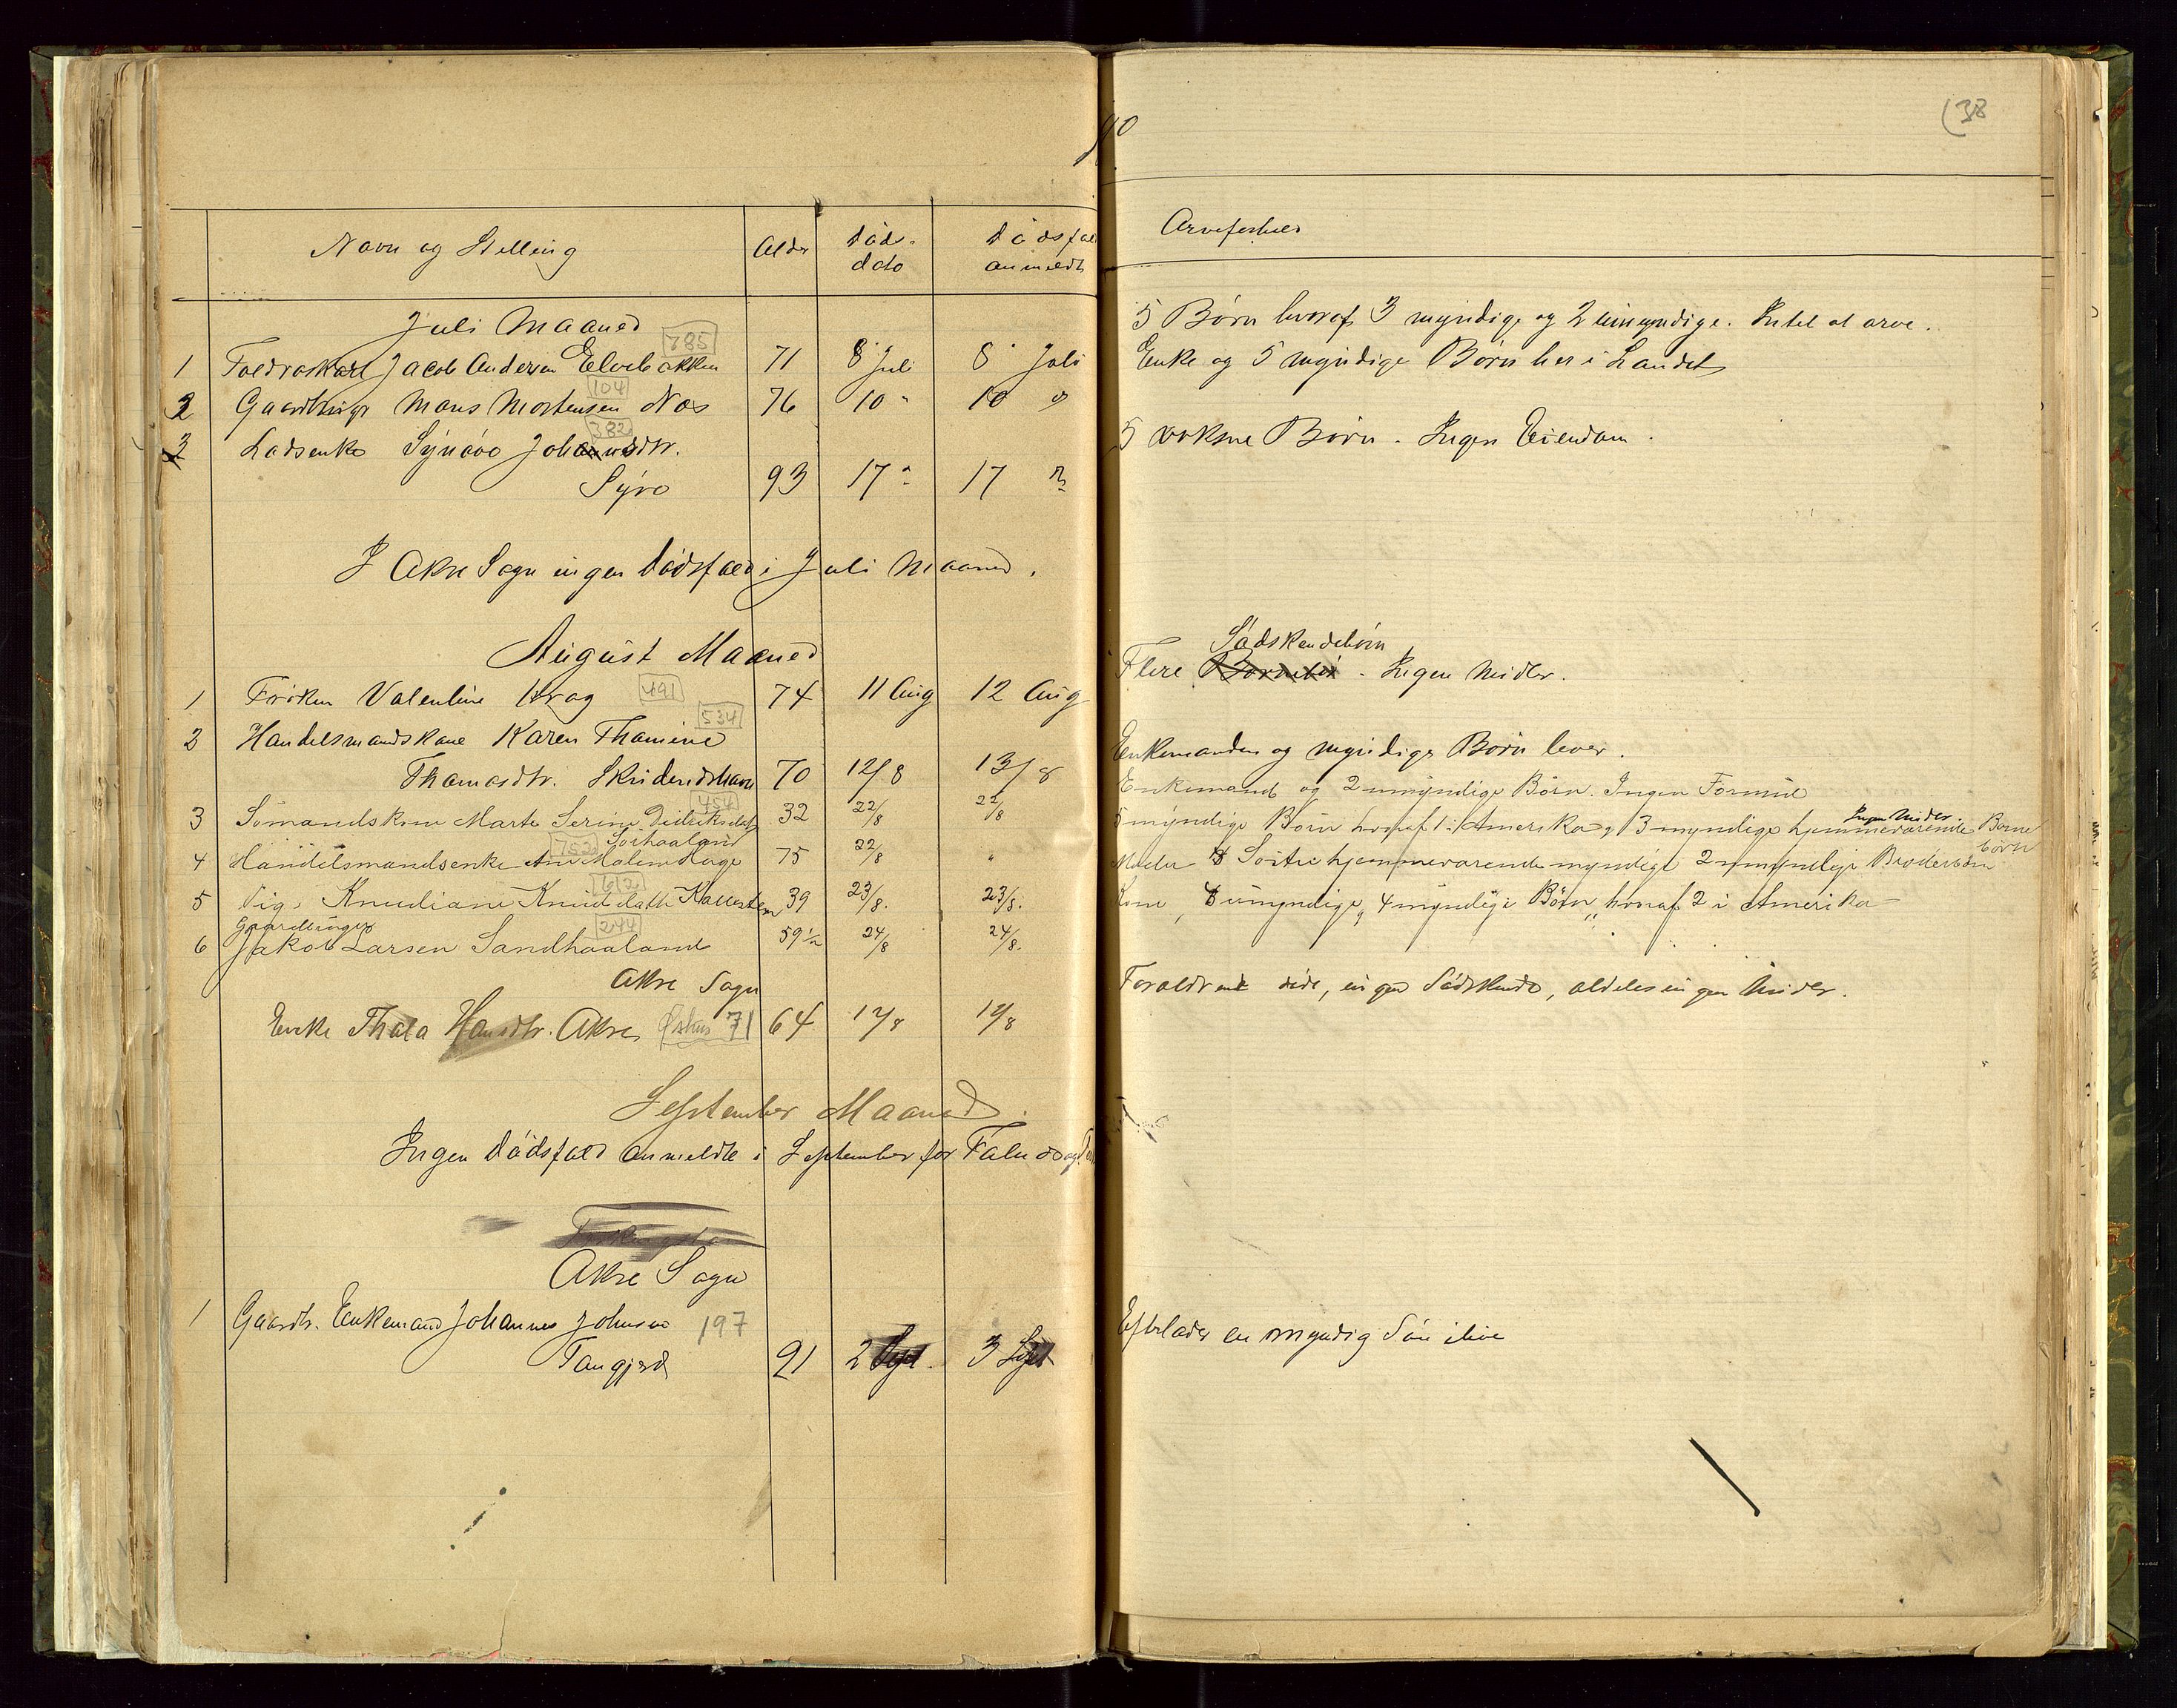 (38
Navn og Stilling
Alder
Døds-
dato
Dødsfald
anmeldt
Arveforhold
Juli Maaned
785
1 Foedraskarl Jacob Andersen Elvebakken 71 8 Juli 8 Juli
5 Børn hvoraf 3 myndige og 2 umyndige. Intet at arve.
104
2 Gaardbruger Mons Mortensen Næs 76 10 " 10 "
Enke og 5 myndige Børn her i Landet
382
3 Ladsenke Synøve Johannsdtr.
Syre 93 17 " 17 "
5 voksne Børn. Ingen Eiendom.
I Akre Sogn ingen Dødsfald i Juli Maaned.
August Maaned
1 Frøken Valentine Krag 491 74 11 Aug 12 Aug
Sødskendebørn
Flere - Ingen Midler.
534
2 Handelsmandskone Karen Thamine
Thomasdtr. Skudeneshavn 70 12/8 13/8
Enkemanden og myndige Børn lever.
454
3 Sømandskone Marte Serine Didriksdatter 32 22/8 22/8
Sørhaaland
Enkemand og 2 umyndige Børn. Ingen Formue
752
4 Handelsmandsenke Ane Malene Hage 75 22/8 "
5 myndige Børn hvoraf 1 i Amerika og 3 myndige hjemmeværende Børne
Ingen Midler.
Børn
612
5 Pige Knudiane Knudsdatter Kallesten 39 23/8. 23/8.
Moder Søstre hjemmeværende myndige 2 umyndige Broderbørn
Gaardbruger 244
6 Jakob Larsen Sandhaaland 59½ 24/8 24/8.
Kone, umyndige, 4 myndige Børn, hvoraf 2 i Amerika
Akre Sogn
Enke Thala Hansdtr. Akre Østhus 71 64 12/8 12/8
Forældrene døde, ingen Sødskende, aldeles ingen Midler.
September Maaned.
Ingen Dødsfald anmeldte i September for Falnes og
Akre Sogn
1 Gaardbr. Enkemand Johannes Johnsen 197
Tangjerd 91 2 Sept. 3 Sept
Efterlader en myndig Søn ilive